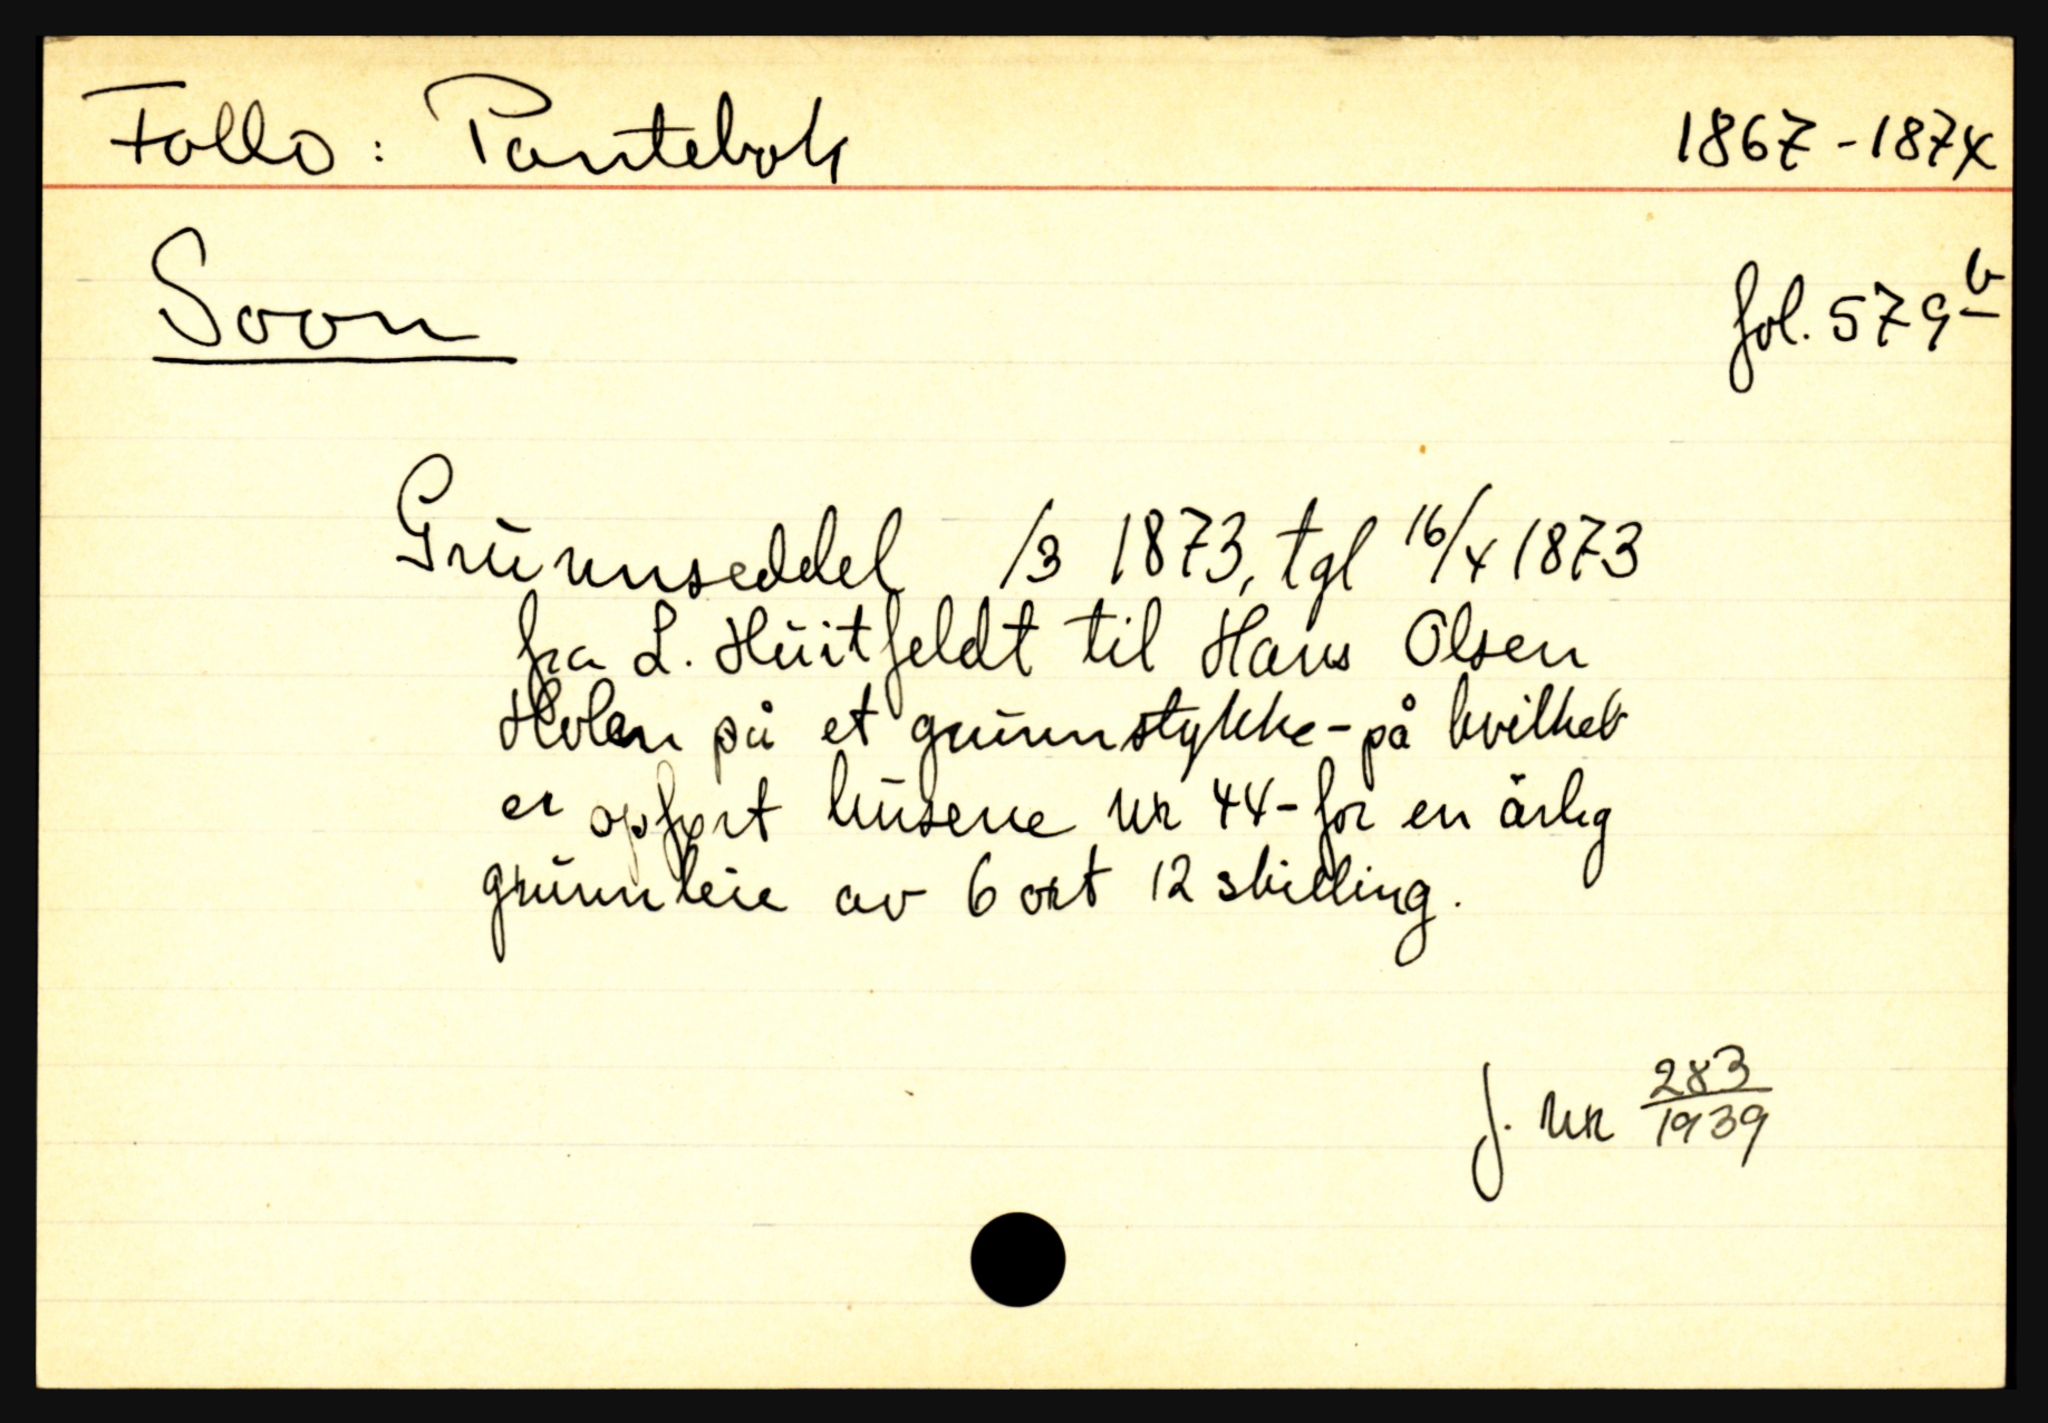 Follo: Pantebok 1867-1874
Soon fol. 579 b
Grunnseddel /3 1873, tgl 16/4 1873
fra L. Huitfeldt til Hans Olsen
Holen på et grunnstykke - på hvilket
er opført husene nr 44 - for en årleg
grunnleie av 6 ort 12 skilling.
J. nr 283/1939